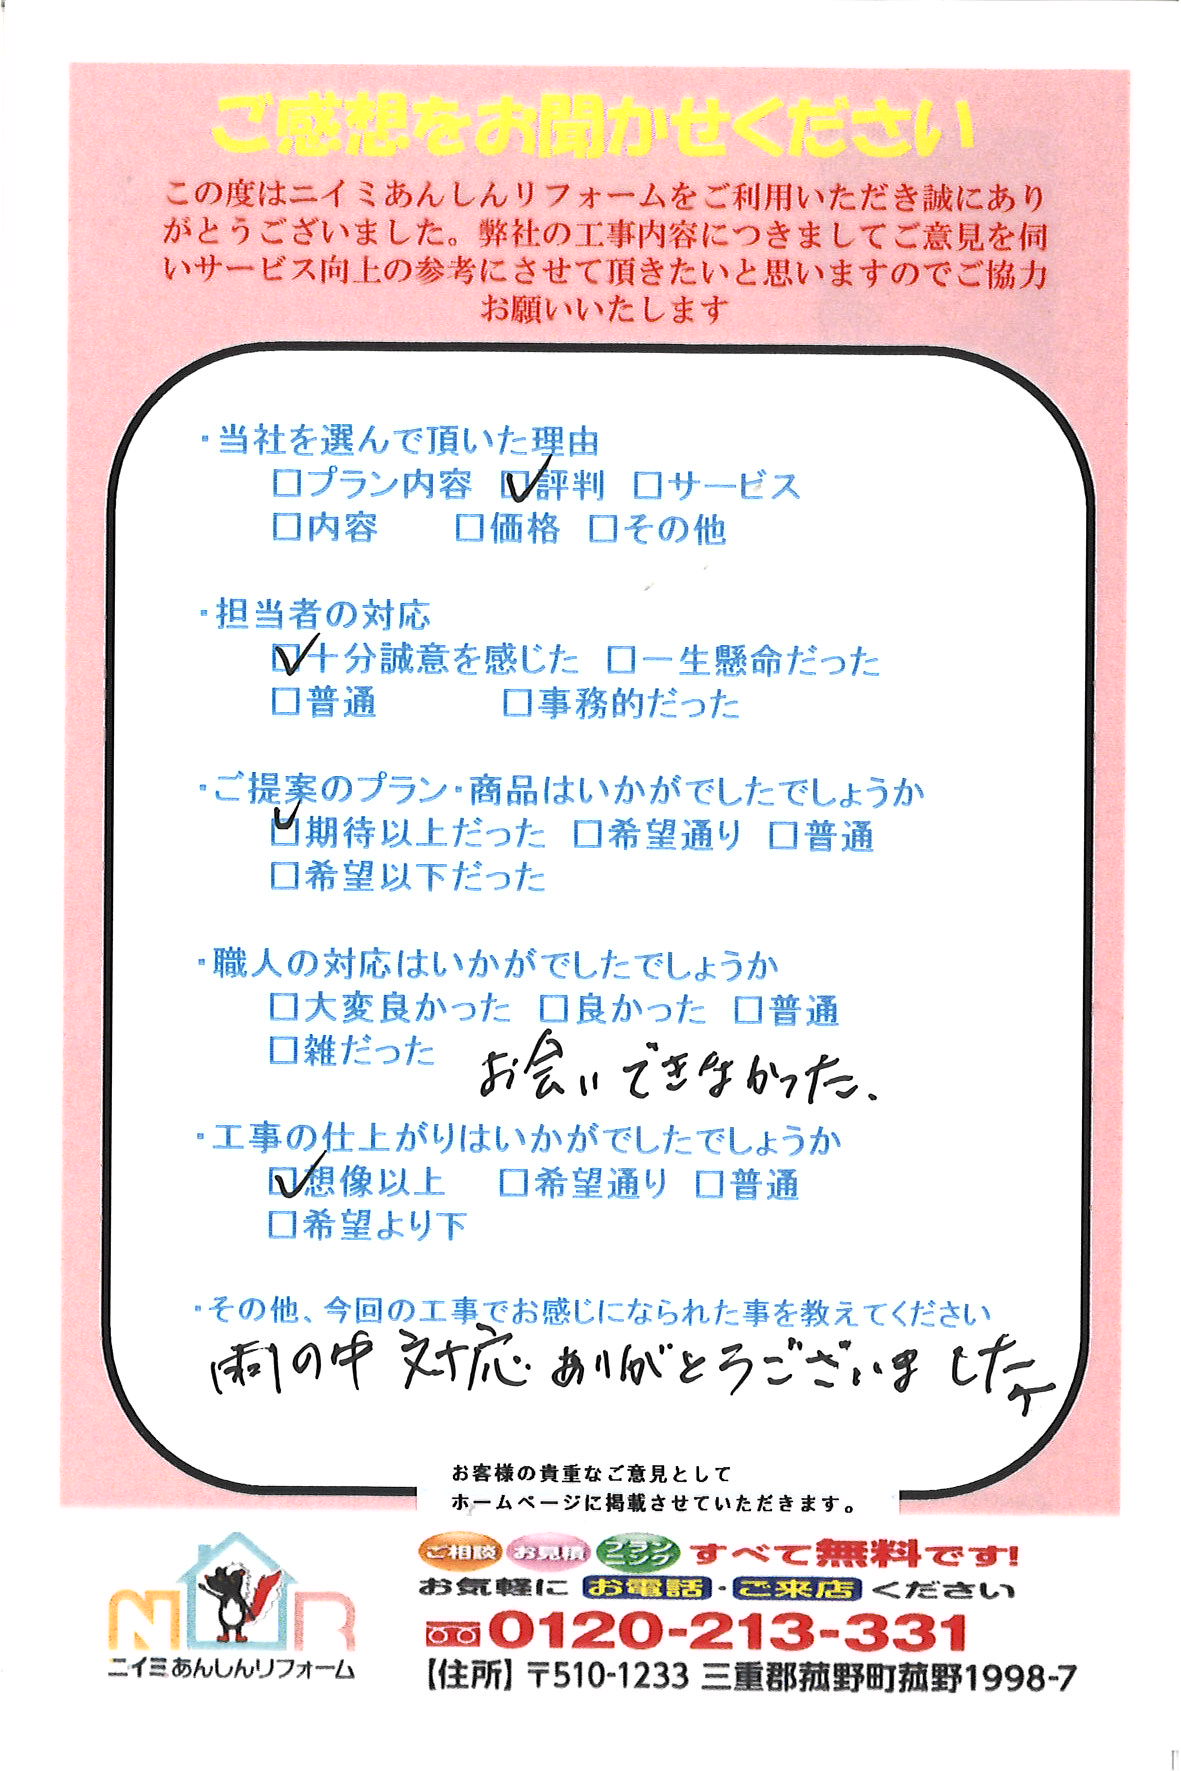 ご感想をお聞かせください
この度はニイミあんしんリフォームをご利用いただき誠にあり
がとうございました。弊社の工事内容につきましてご意見を伺
いサービス向上の参考にさせて頂きたいと思いますのでご協力
お願いいたします
・当社を選んで頂いた理由
□プラン内容 ☑評判 □サービス
□内容 □価格 □その他
・担当者の対応
☑十分誠意を感じた □一生懸命だった
□普通 □事務的だった
・ご提案のプラン・商品はいかがでしたでしょうか
☑期待以上だった □希望通り □普通
□希望以下だった
・職人の対応はいかがでしたでしょうか
□大変良かった □良かった □普通
□雑だった お会いできなかった.
・工事の仕上がりはいかがでしたでしょうか
☑想像以上 □希望通り □普通
□希望より下
・その他、今回の工事でお感じになられた事を教えてください
雨の中 対応 ありがとうございました
お客様の貴重なご意見として
ホームページに掲載させていただきます。
ご相談 お見積 プランニング すべて無料です!
お気軽に お電話・ご来店 ください
0120-213-331
【住所】〒510-1233 三重郡菰野町菰野1998-7
N R
ニイミあんしんリフォーム